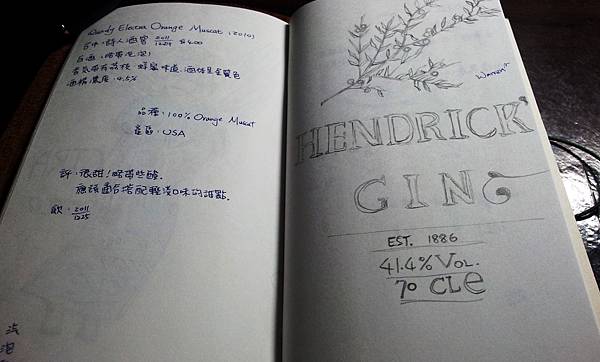 Quady Electra Orange Muscat (2010)
台中:詩人酒窖 2011 12.24 $600
白酒(略帶氣泡)
香氣帶有荔枝、蜂蜜味道、酒體呈金黃色
酒精濃度:4.5%
品種:100% Orange Muscat
產區:USA
評:很甜!略帶些酸.
應該適合搭配輕淡口味的甜點.
飲:2011 12.25
汽
泡
HENDRICK'
GIN
EST. 1886
41.4% VOL.
70 CLe